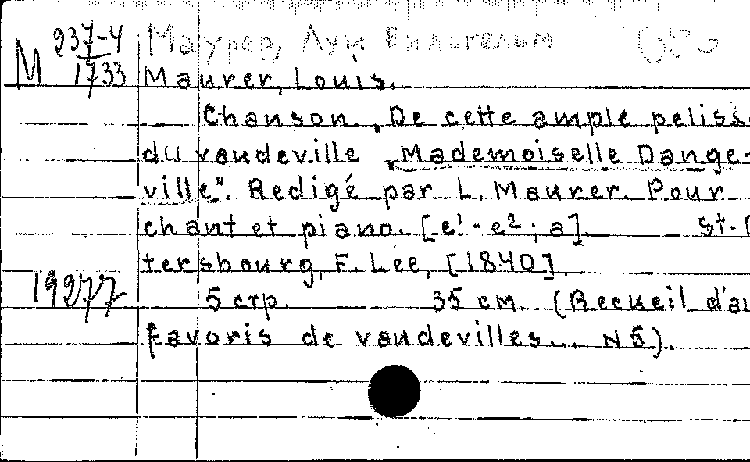 М 237-4 Маурер, Луи Вильгельм
1733 Maurer, Louis.
Chanson. „De cette ample peliss
du vaudeville „Mademoiselle Dange-
ville". Redigé par L. Maurer. Pour
chant et piano. [e¹-e²; a] St.-
tersbourg, F. Lee, [1840].
19277 5 стр. 35 см. (Recueil d'ai
favoris de vaudevilles... N5).